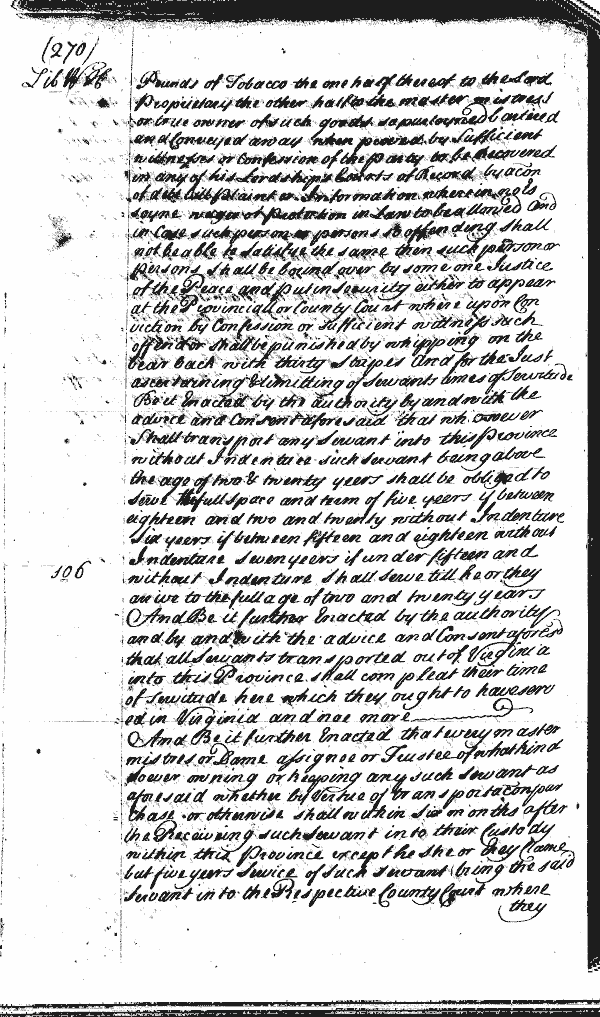 (270)
Lib
Pounds of Tobacco the one half thereof to the Lord
Proprietary the other half to the master mistress
or true owner of such goods so purloyned
and Conveyed away when proved by Sufficient
wittnesses or Confession of the party to be Recovered
in any of his Lordships Courts of Record by acon
of debt bill plaint or Information wherein no Es
soyne wager or Protection in Law to be allowed And
in Case such person or persons so offending shall
not be able to Satisfye the same then such person or
Persons shall be bound over by some one Justice
of the Peace and put in security either to appear
at the Provinciall or County Court where upon Con
viction by Confession or Sufficient wittness such
offendor shall be punished by whipping on the
bear back with thirty Stripes And for the Just
ascertaining & limitting of Servants times of Servitude
Be it Enacted by the authority by and with the
advice and Consent aforesaid that whosoever
Shall transport any Servant into this Province
without Indenture such servant being above
the age of two & twenty years shall be obliged to
serve the full space and term of five years if between
eighteen and two and twenty without Indenture
Six years if between fifteen and eighteen without
Indenture Seven years if under fifteen and
106
without Indenture Shall serve till he or they
arrive to the full age of two and twenty years
And Be it further Enacted by the authority
and by and with the advice and Consent aforesd
that all Servants transported out of Virginia
into this Province shall compleat their time
of Servitude here which they ought to have serv
ed in Virginia and noe more
And Be it further Enacted that every master
mistres or Dame assignee or Trustee of what kind
soever owning or keeping any such Servant as
aforesaid whether by Vertue of transportacon pur
chase or otherwise shall within six months after
the Receiveing such Servant into their Custody
within this Province except he she or they Clame
but five years Service of such servant bring the said
Servant into the Respective County Court where
they